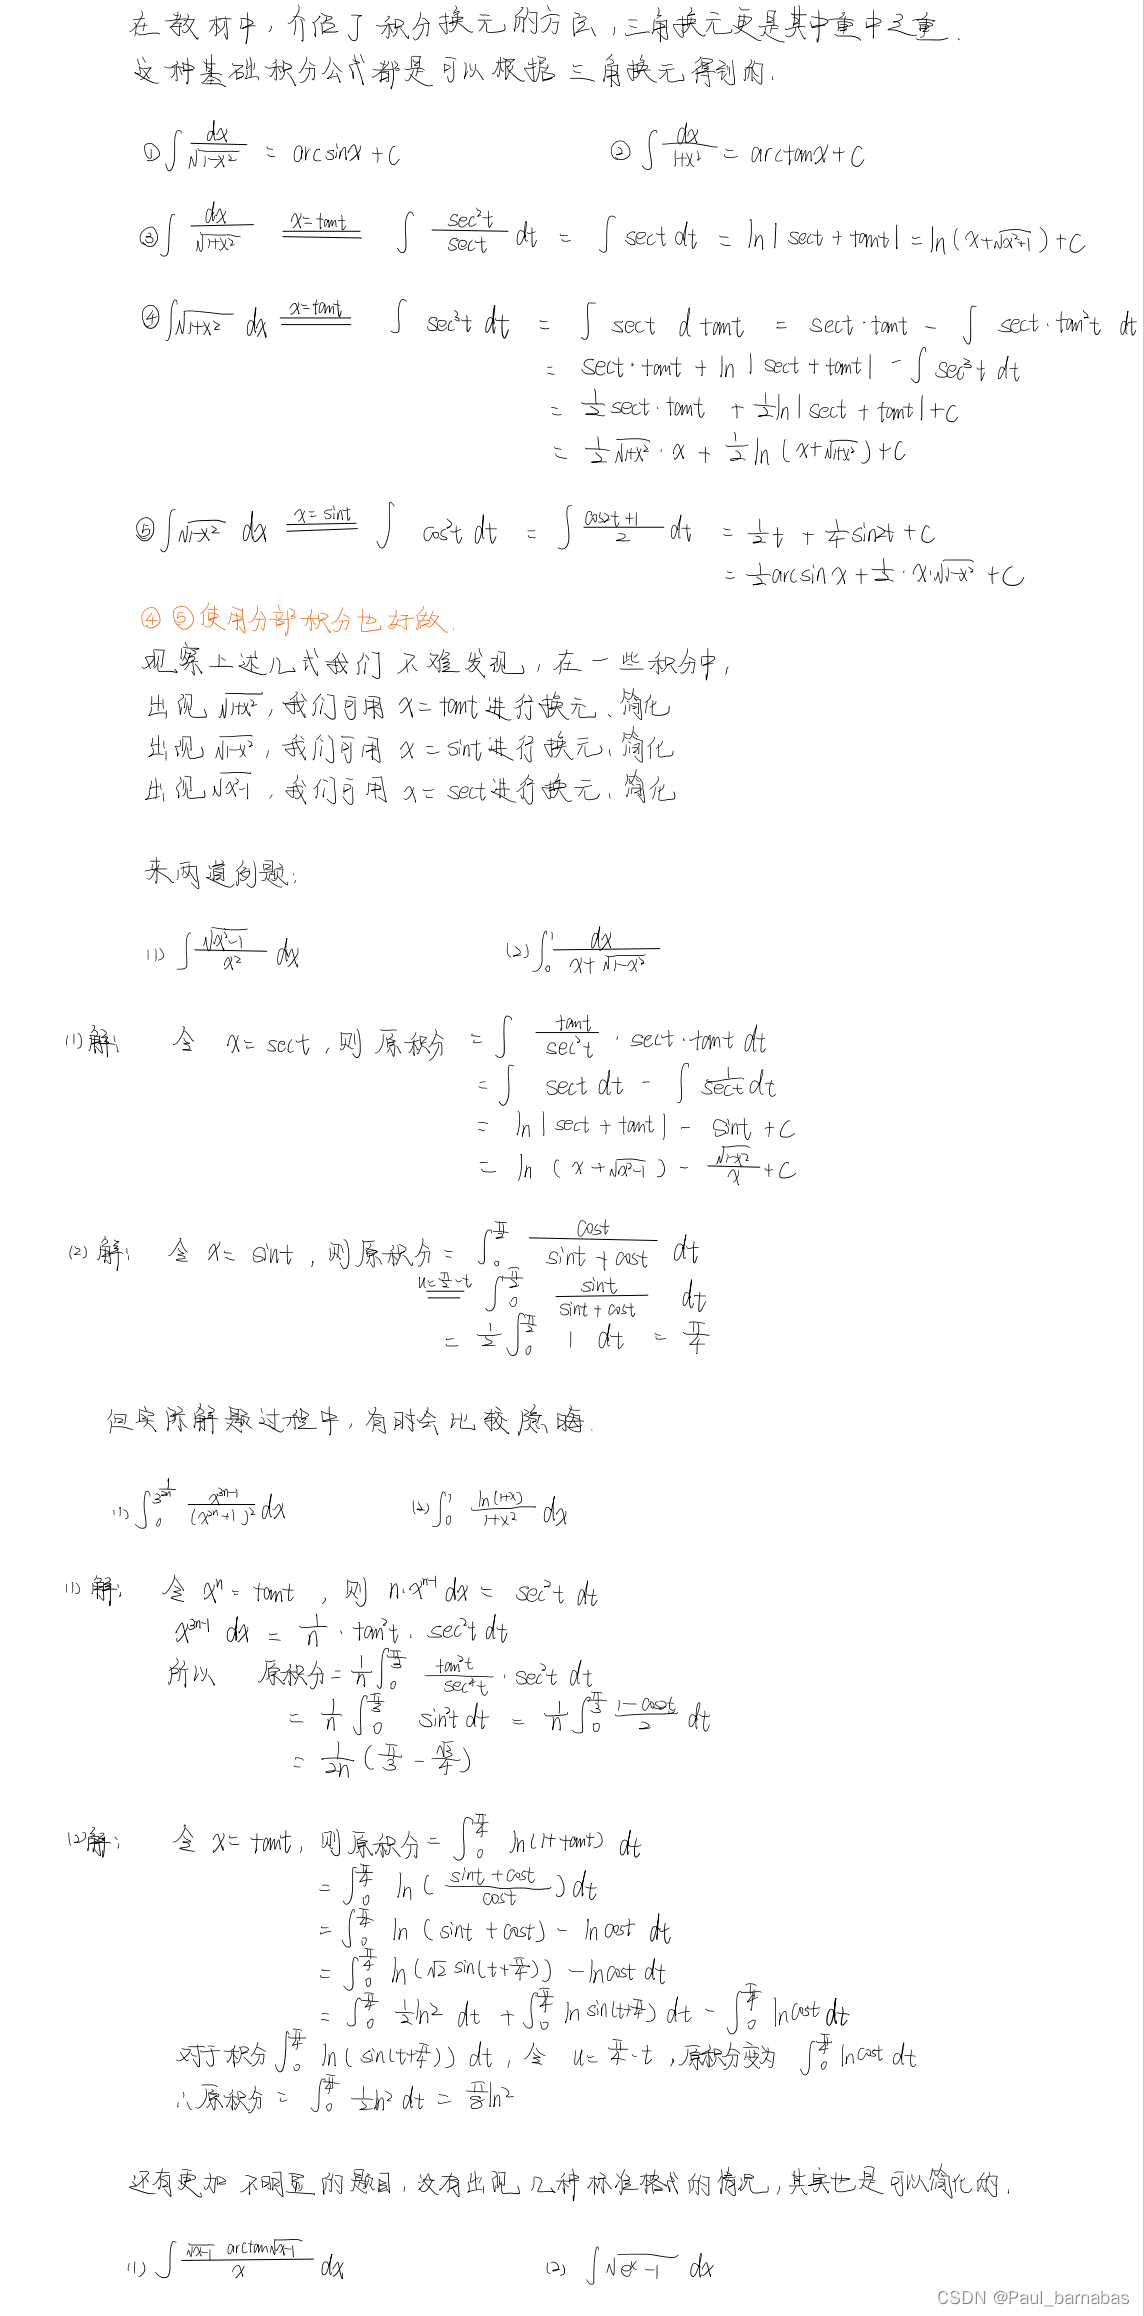 在教材中，介绍了积分换元的方法，三角换元更是其中重中之重.
这种基础积分公式都是可以根据三角换元得到的.
① ∫ dx/√(1-x²) = arcsinx + C ② ∫ dx/(1+x²) = arctanx + C
③ ∫ dx/√(1+x²) x=tant ∫ sec²t/sect dt = ∫ sect dt = ln|sect + tant| = ln(x+√(x²+1)) + C
④ ∫√(1+x²) dx x=tant ∫ sec³t dt = ∫ sect d tant = sect·tant - ∫ sect·tan²t dt
= sect·tant + ln|sect + tant| - ∫ sec³t dt
= 1/2 sect·tant + 1/2 ln|sect + tant| + C
= 1/2 √(1+x²)·x + 1/2 ln(x+√(1+x²)) + C
⑤ ∫√(1-x²) dx x=sint ∫ cos²t dt = ∫ (cos2t+1)/2 dt = 1/2 t + 1/4 sin2t + C
= 1/2 arcsinx + 1/2·x·√(1-x²) + C
④ ⑤使用分部积分也好做.
观察上述几式我们不难发现，在一些积分中，
出现√(1+x²)，我们可用 x=tant进行换元、简化
出现√(1-x²)，我们可用 x=sint进行换元、简化
出现√(x²-1)，我们可用 x=sect进行换元、简化
来两道例题：
(1) ∫ √(x²-1)/x² dx (2) ∫₀¹ dx/(x+√(1-x²))
(1)解： 令 x=sect，则原积分 = ∫ tant/sec²t · sect·tant dt
= ∫ sect dt - ∫ 1/sect dt
= ln|sect + tant| - sint + C
= ln(x+√(x²-1)) - √(1-x²)/x + C
(2)解： 令 x=sint，则原积分 = ∫₀^(π/2) cost/(sint+cost) dt
u=π/2-t ∫₀^(π/2) sint/(sint+cost) dt
= 1/2 ∫₀^(π/2) 1 dt = π/4
但实际解题过程中，有时会比较隐晦.
(1) ∫₀^(3^(1/2n)) x^(3n-1)/(x^(2n)+1)² dx (2) ∫₀¹ ln(1+x)/(1+x²) dx
(1)解： 令 xⁿ=tant，则 n·x^(n-1) dx = sec²t dt
x^(3n-1) dx = 1/n · tan²t · sec²t dt
所以 原积分 = 1/n ∫₀^(π/3) tan²t/sec⁴t · sec²t dt
= 1/n ∫₀^(π/3) sin²t dt = 1/n ∫₀^(π/3) (1-cos2t)/2 dt
= 1/2n (π/3 - √3/4)
(2)解： 令 x=tant，则原积分 = ∫₀^(π/4) ln(1+tant) dt
= ∫₀^(π/4) ln((sint+cost)/cost) dt
= ∫₀^(π/4) ln(sint+cost) - lncost dt
= ∫₀^(π/4) ln(√2 sin(t+π/4)) - lncost dt
= ∫₀^(π/4) 1/2 ln2 dt + ∫₀^(π/4) lnsin(t+π/4) dt - ∫₀^(π/4) lncost dt
对于积分 ∫₀^(π/4) ln(sin(t+π/4)) dt，令 u=π/4-t，原积分变为 ∫₀^(π/4) lncost dt
∴原积分 = ∫₀^(π/4) 1/2 ln2 dt = π/8 ln2
还有更加不明显的题目，没有出现几种标准格式的情况，其实也是可以简化的.
(1) ∫ √(x-1) arctan√(x-1)/x dx (2) ∫ √(eˣ-1) dx
CSDN @Paul_barnabas